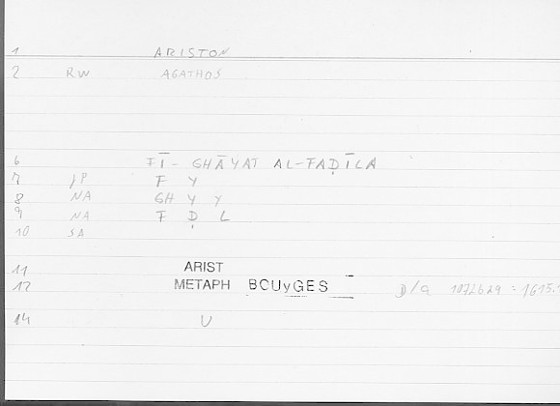 1 ARISTON
2 RW AGATHOS
6 FĪ- GHĀYAT AL-FAḌĪLA
7 JP F Y
8 NA GH Y Y
9 NA F Ḍ L
10 SA
11 ARIST
12 METAPH BOUYGES D/G 1072b29 = 1615.1
14 U